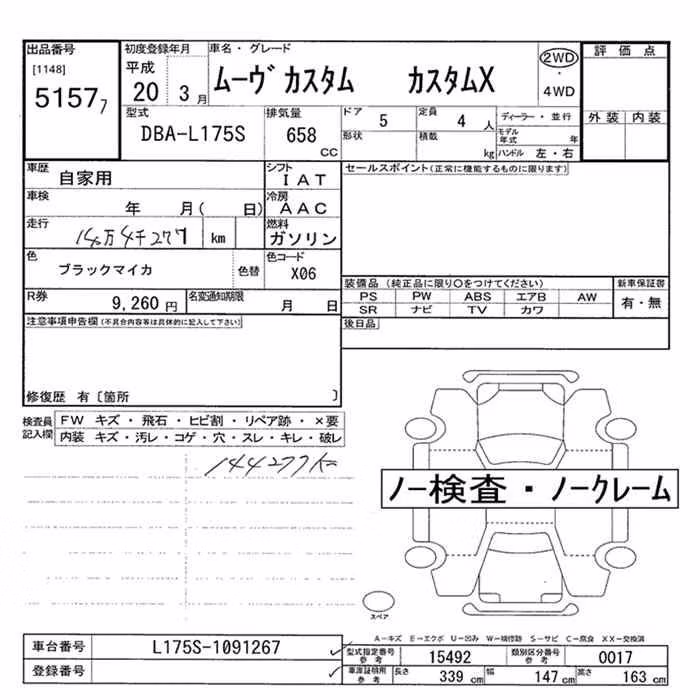 出品番号
[1148]
5157 7
初度登録年月
平成
20 3月
車名・グレード
ムーヴ カスタム カスタムX
2WD
・
4WD
評価点
外装 内装
型式
DBA-L175S
排気量
658
CC
ドア 5
定員 4 人
形状
積載 kg
ディーラー・並行
モデル年式 年
ハンドル 左・右
車歴
自家用
シフト
IAT
セールスポイント(正常に機能するものに限ります)
車検
年 月( 日)
冷房
AAC
走行
14万4千277 km
燃料
ガソリン
色
ブラックマイカ
色替
色コード
X06
装備品(純正品に限り○をつけてください)
PS PW ABS エアB AW
SR ナビ TV カワ
新車保証書
有・無
R券
9,260 円
名変通知期限
月 日
後日品
注意事項申告欄(不具合内容等は具体的に記入して下さい)
修復歴 有〔箇所 〕
検査員
記入欄
FW キズ・飛石・ヒビ割・リペア跡・×要
内装 キズ・汚レ・コゲ・穴・スレ・キレ・破レ
144277K
ノー検査・ノークレーム
スペア
A-キズ E-エクボ U-凹み W-補修跡 S-サビ C-腐食 XX-交換済
車台番号
L175S-1091267
登録番号
型式指定番号
参考
15492
類別区分番号
参考
0017
車庫証明用
参考
長さ 339 cm
幅 147 cm
高さ 163 cm